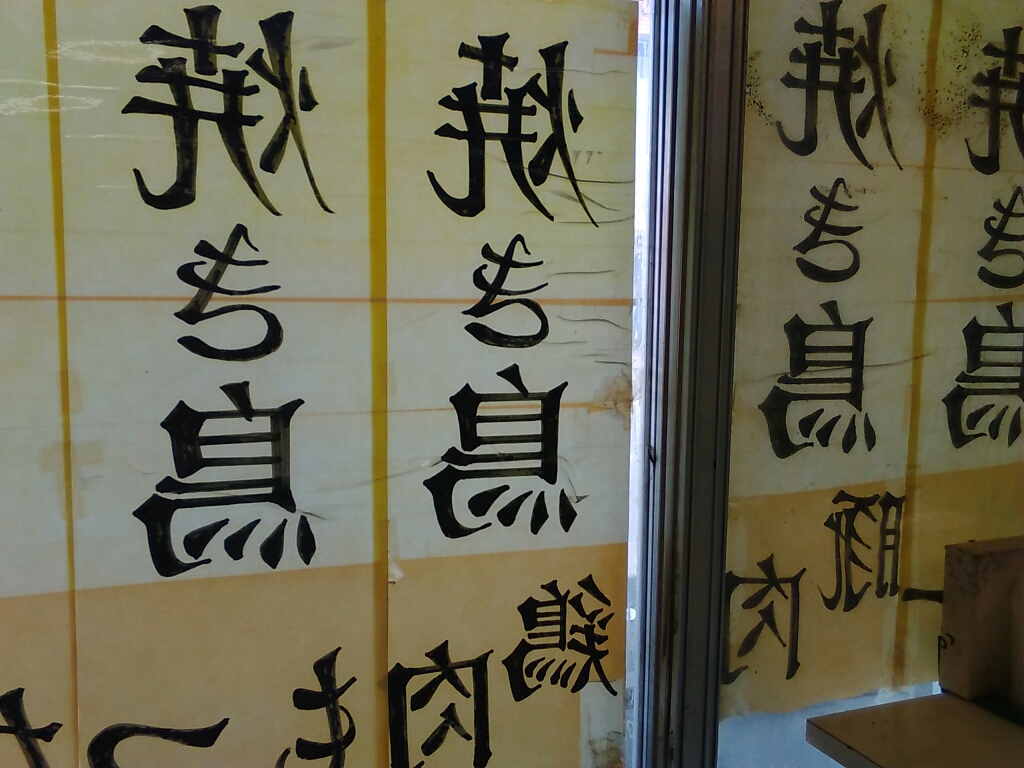 焼き鳥
焼き鳥
焼き鳥
焼き鳥
豚肉
鶏肉
もつ